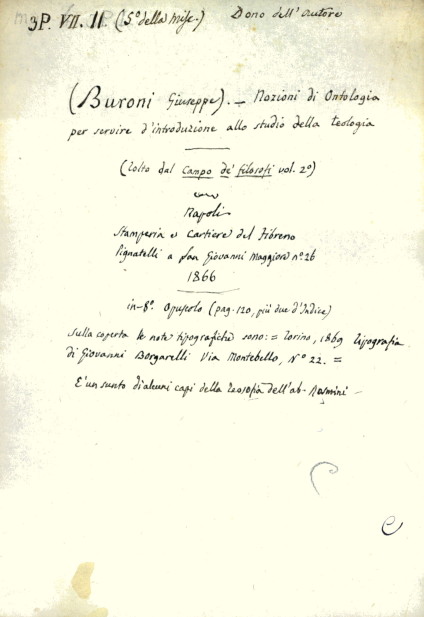 3P. VII. 11. (5° della Misc.) Dono dell'autore
(Buroni Giuseppe). — Nozioni di Ontologia
per servire d'introduzione allo studio della teologia
(Tolto dal Campo de' filosofi vol. 2°)
Napoli
Stamperia e Cartiere del Fibreno
Pignatelli a San Giovanni Maggiore n° 26
1866
in-8°. Opuscolo (pag. 120, più due d'Indice)
Sulla coperta le note tipografiche sono: = Torino, 1869 Tipografia
di Giovanni Borgarelli Via Montebello, N° 22. =
E' un sunto di alcuni capi della Teosofia dell'ab. Rosmini —
C